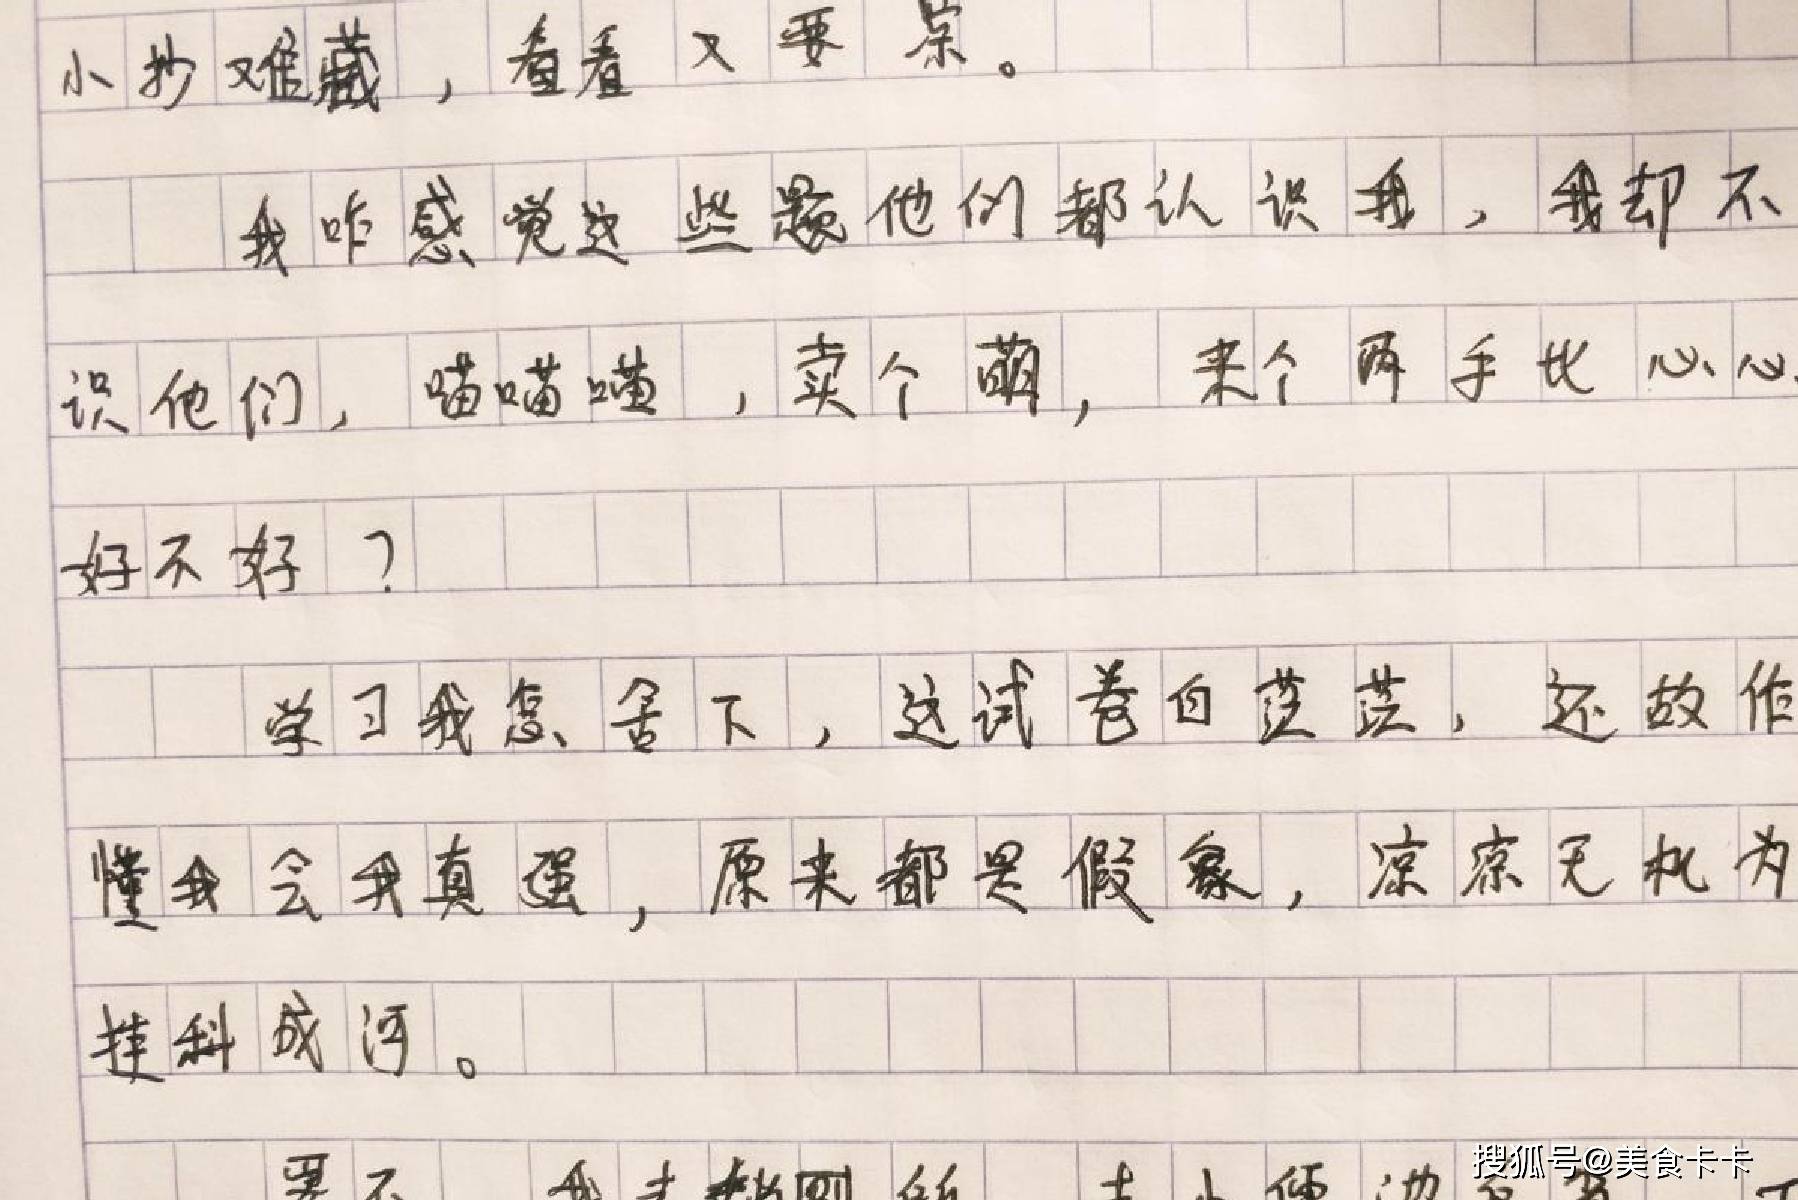 小抄难藏，看看又要
我咋感觉这些题他们都认识我，我却不
识他们，喵喵喵，卖个萌，来个两手比心心
好不好？
学习我怎舍下，这试卷白茫茫，还故作
懂我会我真强，原来都是假象，凉凉无机为
挂科成河。
搜狐号@美食卡卡